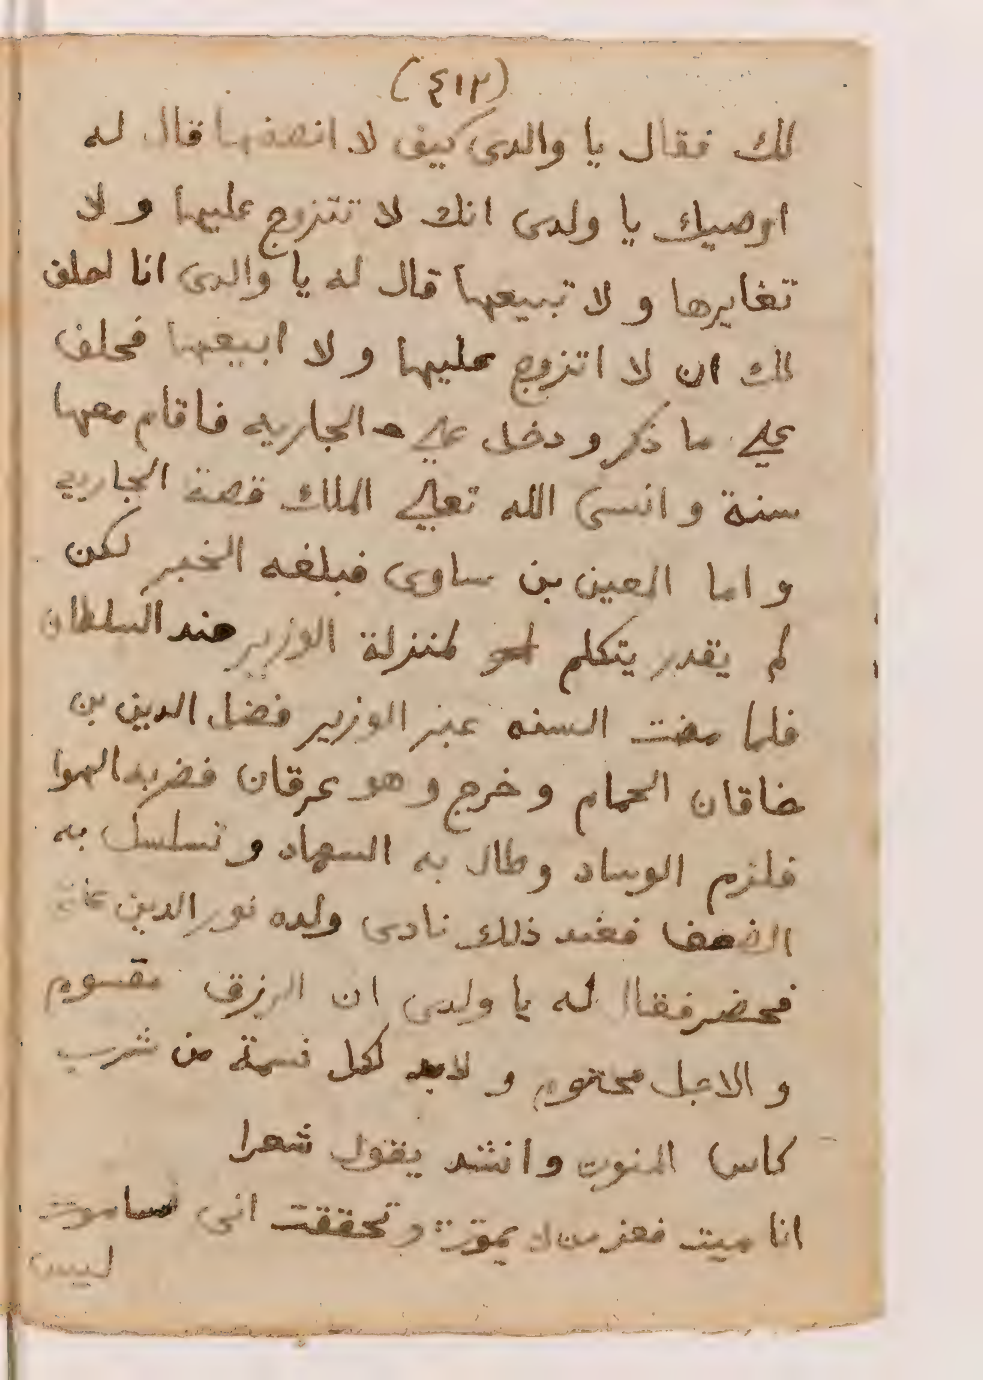 (٤١٢)
لك فقال يا والدى كيف لا انصفها قال له
اوصيك يا ولدى انك لا تتزوج عليها و لا
تغايرها و لا تبيعها قال له يا والدى انا احلف
لك ان لا اتزوج عليها و لا ابيعها فحلف
على ما ذكر و دخل على الجاريه فاقام معها
سنة و انسى الله تعالى الملك قصة الجاريه
و اما المعين بن ساوى فبلغه الخبر لكن
لم يقدر يتكلم لمنزلة الوزير عند السلطان
فلما مضت السنه عبر الوزير فضل الدين بن
خاقان الحمام و خرج و هو عرقان فضربه الهوا
فلزم الوساد و طال به السهاد و تسلسل به
الضعف فعند ذلك نادى ولده نور الدين على
فحضر فقال له يا ولدى ان الرزق مقسوم
و الاجل محتوم و لابد لكل نسمة من شرب
كاس المنون و انشد يقول شعرا
انا ميت فعز من لا يموت و تحققت انى ساموت
ليس